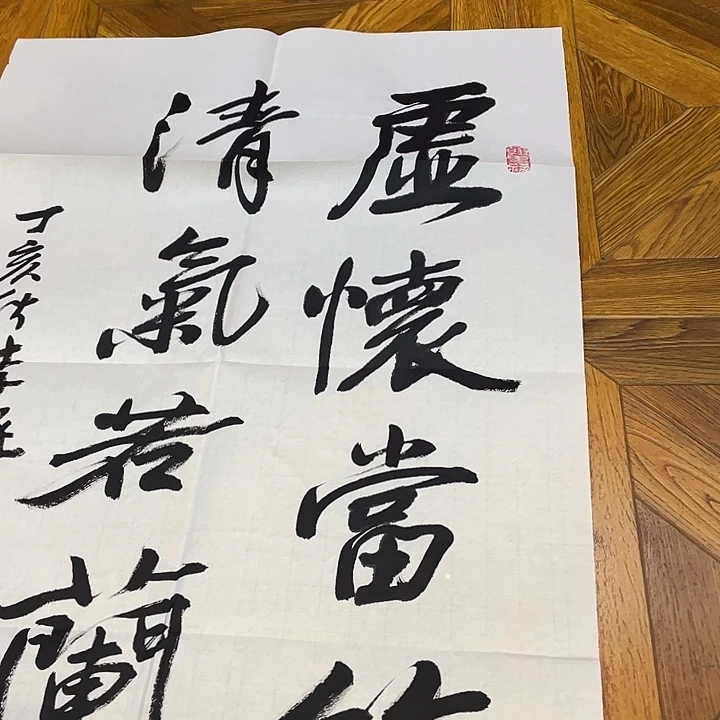 虛懷當竹
清氣若蘭
丁亥